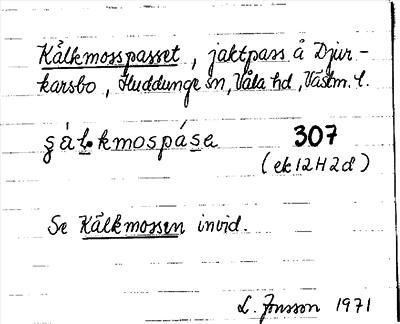 Kålkmosspasset, jaktpass å Djur-
karsbo, Huddunge sn, Våla hd, Västm. l.
kmospása 307
(ek 12 H 2 d)
Se Kålkmossen invid.
L. Jonsson 1971